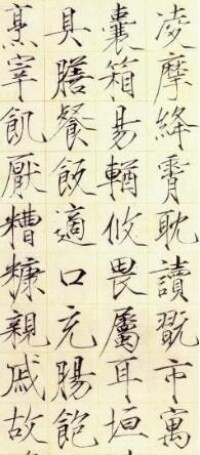 凌摩絳霄耽讀翫市寓
囊箱易輶攸畏屬耳垣
具膳餐飯適口充腸飽
烹宰飢厭糟糠親戚故